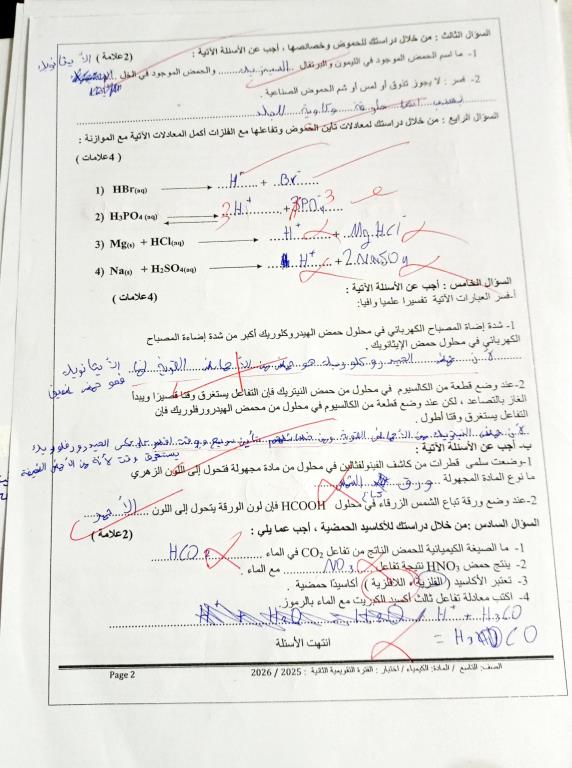 السؤال الثالث : من خلال دراستك للحموض وخصائصها ، أجب عن الأسئلة الآتية : (2علامة)
1- ما اسم الحمض الموجود في الليمون والبرتقال ..الستريك.. والحمض الموجود في الخل
2- فسر : لا يجوز تذوق أو لمس أو شم الحموض الصناعية .
بسبب أنها حارقة وكاوية للجلد
السؤال الرابع : من خلال دراستك لمعادلات تأين الحموض وتفاعلها مع الفلزات أكمل المعادلات الآتية مع الموازنة :
( 4علامات )
1) HBr(aq) → H⁺ + Br⁻
2) H3PO4 (aq) 3H⁺ + PO4 3
3) Mg(s) + HCl(aq) → H⁺ + Mg.HCl
4) Na(s) + H2SO4(aq) → H⁺ + 2.NaSO4
السؤال الخامس : أجب عن الأسئلة الآتية :
(4علامات )
أ-فسر العبارات الآتية تفسيرا علميا وافيا:
1- شدة إضاءة المصباح الكهربائي في محلول حمض الهيدروكلوريك أكبر من شدة إضاءة المصباح
الكهربائي في محلول حمض الإيثانويك .
لأن حمض الهيدروكلوريك هو حمض من الأحماض القوية أما الايثانويك
فهو حمض ضعيف
2-عند وضع قطعة من الكالسيوم في محلول من حمض النيتريك فإن التفاعل يستغرق وقتا قصيرا ويبدأ
الغاز بالتصاعد ، لكن عند وضع قطعة من الكالسيوم في محلول من محمض الهيدروفلوريك فإن
التفاعل يستغرق وقتا أطول .
لأن حمض النيتريك من الأحماض القوية
ب- أجب عن الأسئلة الآتية :
1-وضعت سلمى قطرات من كاشف الفينولفثالين في محلول من مادة مجهولة فتحول إلى اللون الزهري
ما نوع المادة المجهولة ..ورق
2-عند وضع ورقة تباع الشمس الزرقاء في محلول HCOOH فإن لون الورقة يتحول إلى اللون ..الأحمر
السؤال السادس :من خلال دراستك للأكاسيد الحمضية ، أجب عما يلي : (2علامة )
1- ما الصيغة الكيميائية للحمض الناتج من تفاعل CO2 في الماء HCO
2- ينتج حمض HNO3 نتيجة تفاعل NO3 مع الماء .
3- تعتبر الأكاسيد ( الفلزية ، اللافلزية ) أكاسيدًا حمضية .
4- اكتب معادلة تفاعل ثالث أكسيد الكبريت مع الماء بالرموز.
H⁺ + H3CO
= H3CO
انتهت الأسئلة
الصف: التاسع / المادة: الكيمياء / اختبار : الفترة التقويمية الثانية : 2025 / 2026
Page 2